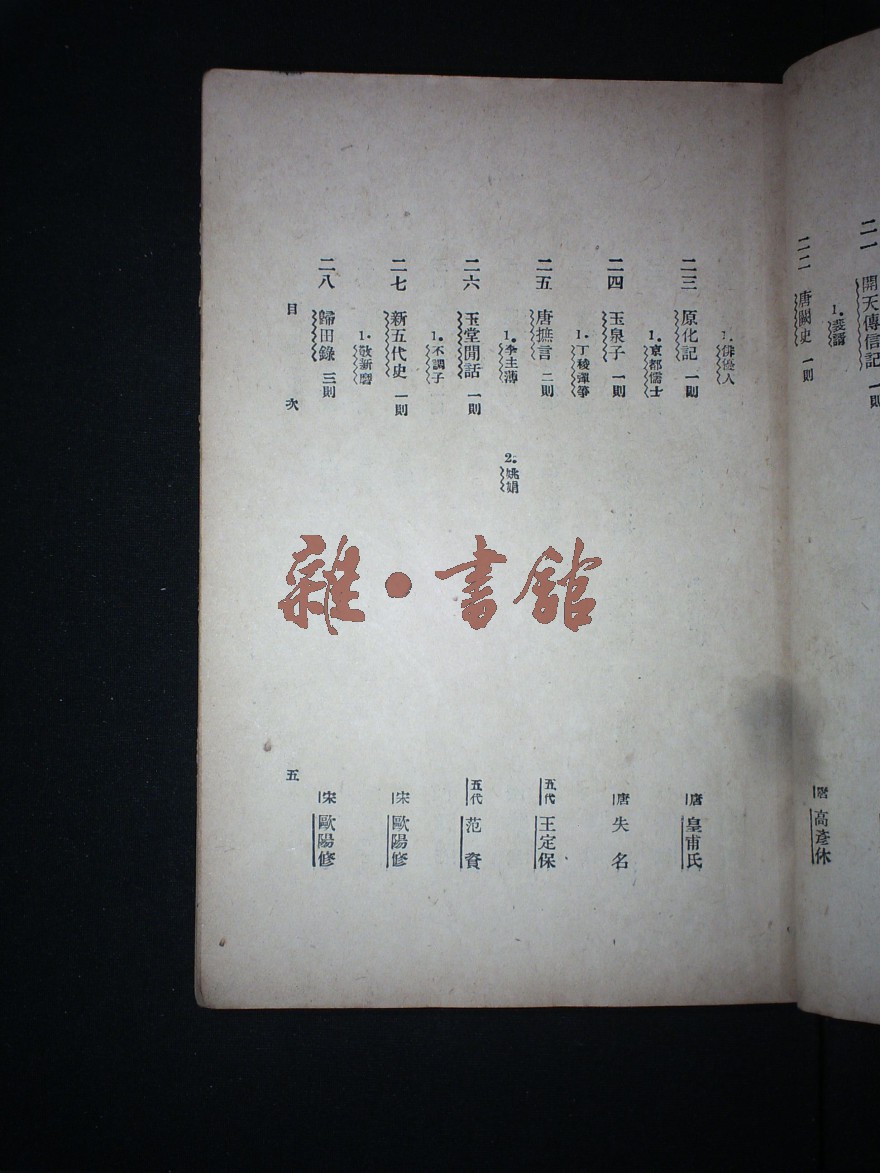 二一 開天傳信記 一則
1. 裴諝
二二 唐闕史 一則
唐 高彥休
1. 俳優人
二三 原化記 一則
唐 皇甫氏
1. 京都儒士
二四 玉泉子 一則
唐 失名
1. 丁稜彈箏
二五 唐摭言 二則
五代 王定保
1. 李主薄
2. 姚頡
二六 玉堂閒話 一則
五代 范資
1. 不調子
二七 新五代史 一則
宋 歐陽修
1. 敬新磨
二八 歸田錄 三則
宋 歐陽修
目次
五
雜·書館